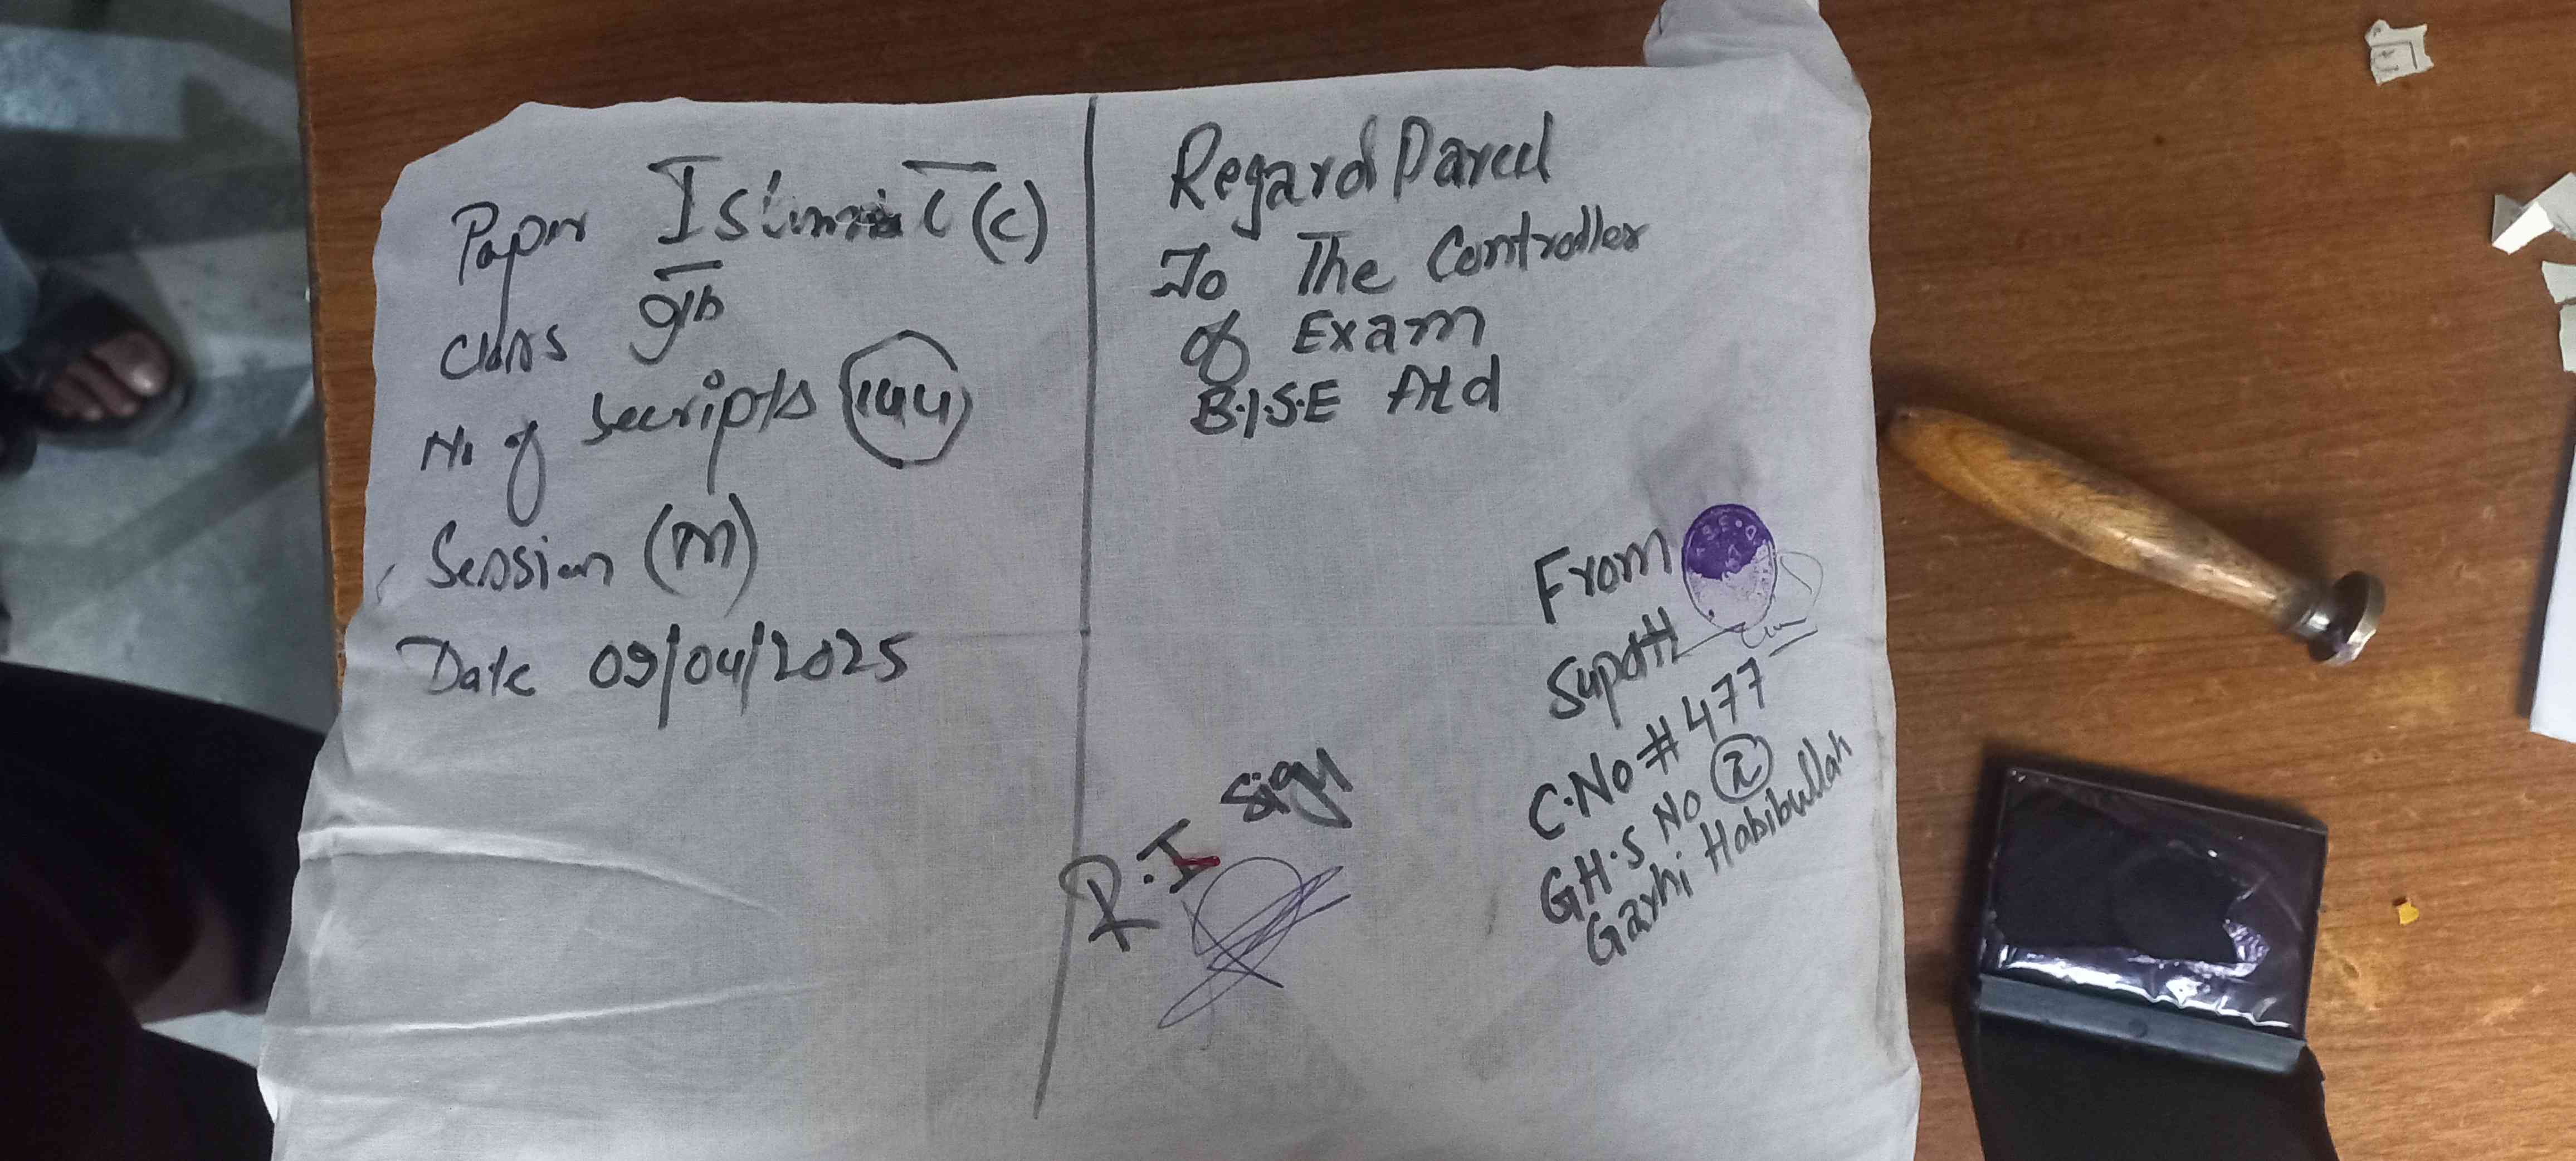 Paper Islamiat (C)
Class 9th
No of Secripts 144
Session (M)
Date 09/04/2025
Regard Parcel
To The Controller
of Exam
B.I.S.E Atd
From
Supdtt
C.No # 477
G.H.S No 2
Garhi Habibullah
R.I Sign